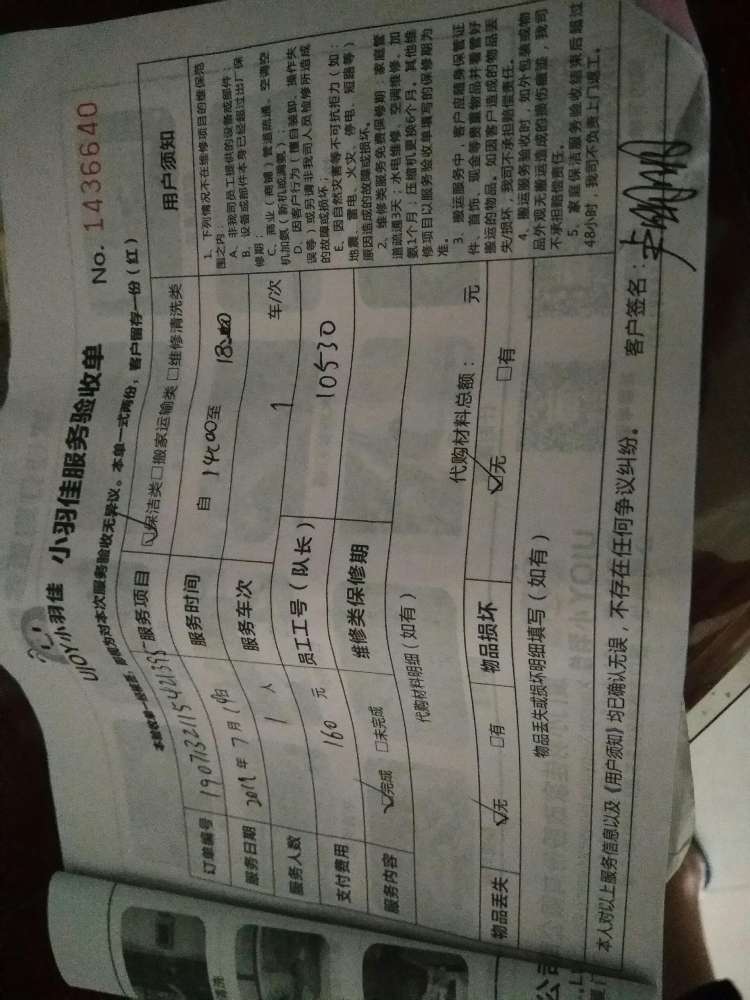 UJOY小羽佳 小羽佳服务验收单 No. 1436640
即视为对本次服务验收无异议。本单一式两份，客户留存一份（红）
订单编号
服务项目 ☑保洁类□搬家运输类 □维修清洗类
服务日期 年 7月 日
服务时间 自 14:00至 18:00
服务人数 1 人
服务车次 1 车/次
支付费用 160 元
员工工号（队长） 10530
服务内容 ☑完成 □未完成
维修类保修期
代购材料明细（如有）
代购材料总额： 元
物品丢失 ☑无 □有
物品损坏 ☑无 □有
物品丢失或损坏明细填写（如有）
用户须知
1、下列情况不在维修项目的维保范
围之内：
A、非我司员工提供的设备或部件；
B、设备或部件本身已经超过出厂保
修期；
C、商业（商铺）管道疏通、空调空
机加氨（新机或漏氨）；
D、因客户行为（擅自装卸、操作失
误等）或另请非我司人员检修所造成
的故障或损坏；
E、因自然灾害等不可抗拒力（如：
地震、雷电、火灾、停电、短路等）
原因造成的故障或损坏。
2、维修类服务免费保修期：家庭管
道疏通3天；水电维修、空调维修、加
氨1个月；压缩机更换6个月。其他维
修项目以服务验收单填写的保修期为
准。
3、搬运服务中，客户应随身保管证
件、首饰、现金等贵重物品并看管好
搬运的物品。如因客户造成的物品丢
失/损坏，我司不承担赔偿责任。
4、搬运服务验收时，如外包装或物
品外观无搬运造成的损伤痕迹，我司
不承担赔偿责任。
5、家庭保洁服务验收结束后超过
48小时，我司不负责上门返工。
本人对以上服务信息以及《用户须知》均已确认无误，不存在任何争议纠纷。 客户签名：